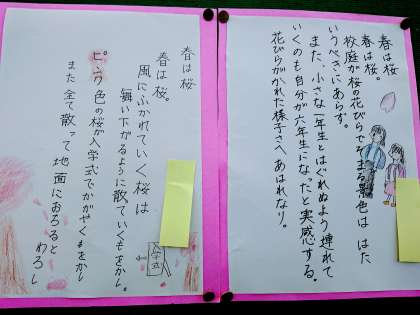 春は桜
春は桜。
校庭が桜の花びらでそまる景色は はた
いうべきにあらず。
また、小さな一年生とはぐれぬよう連れて
いくのも自分が六年生になったと実感する。
花びらがかれた様子さへ あはれなり。
春は桜
春は桜。
風にふかれていく桜は
舞い下がるように散っていくもをかし。
ピンク色の桜が入学式でかがやくもをかし
また全て散って地面におちると
わろし
入学式